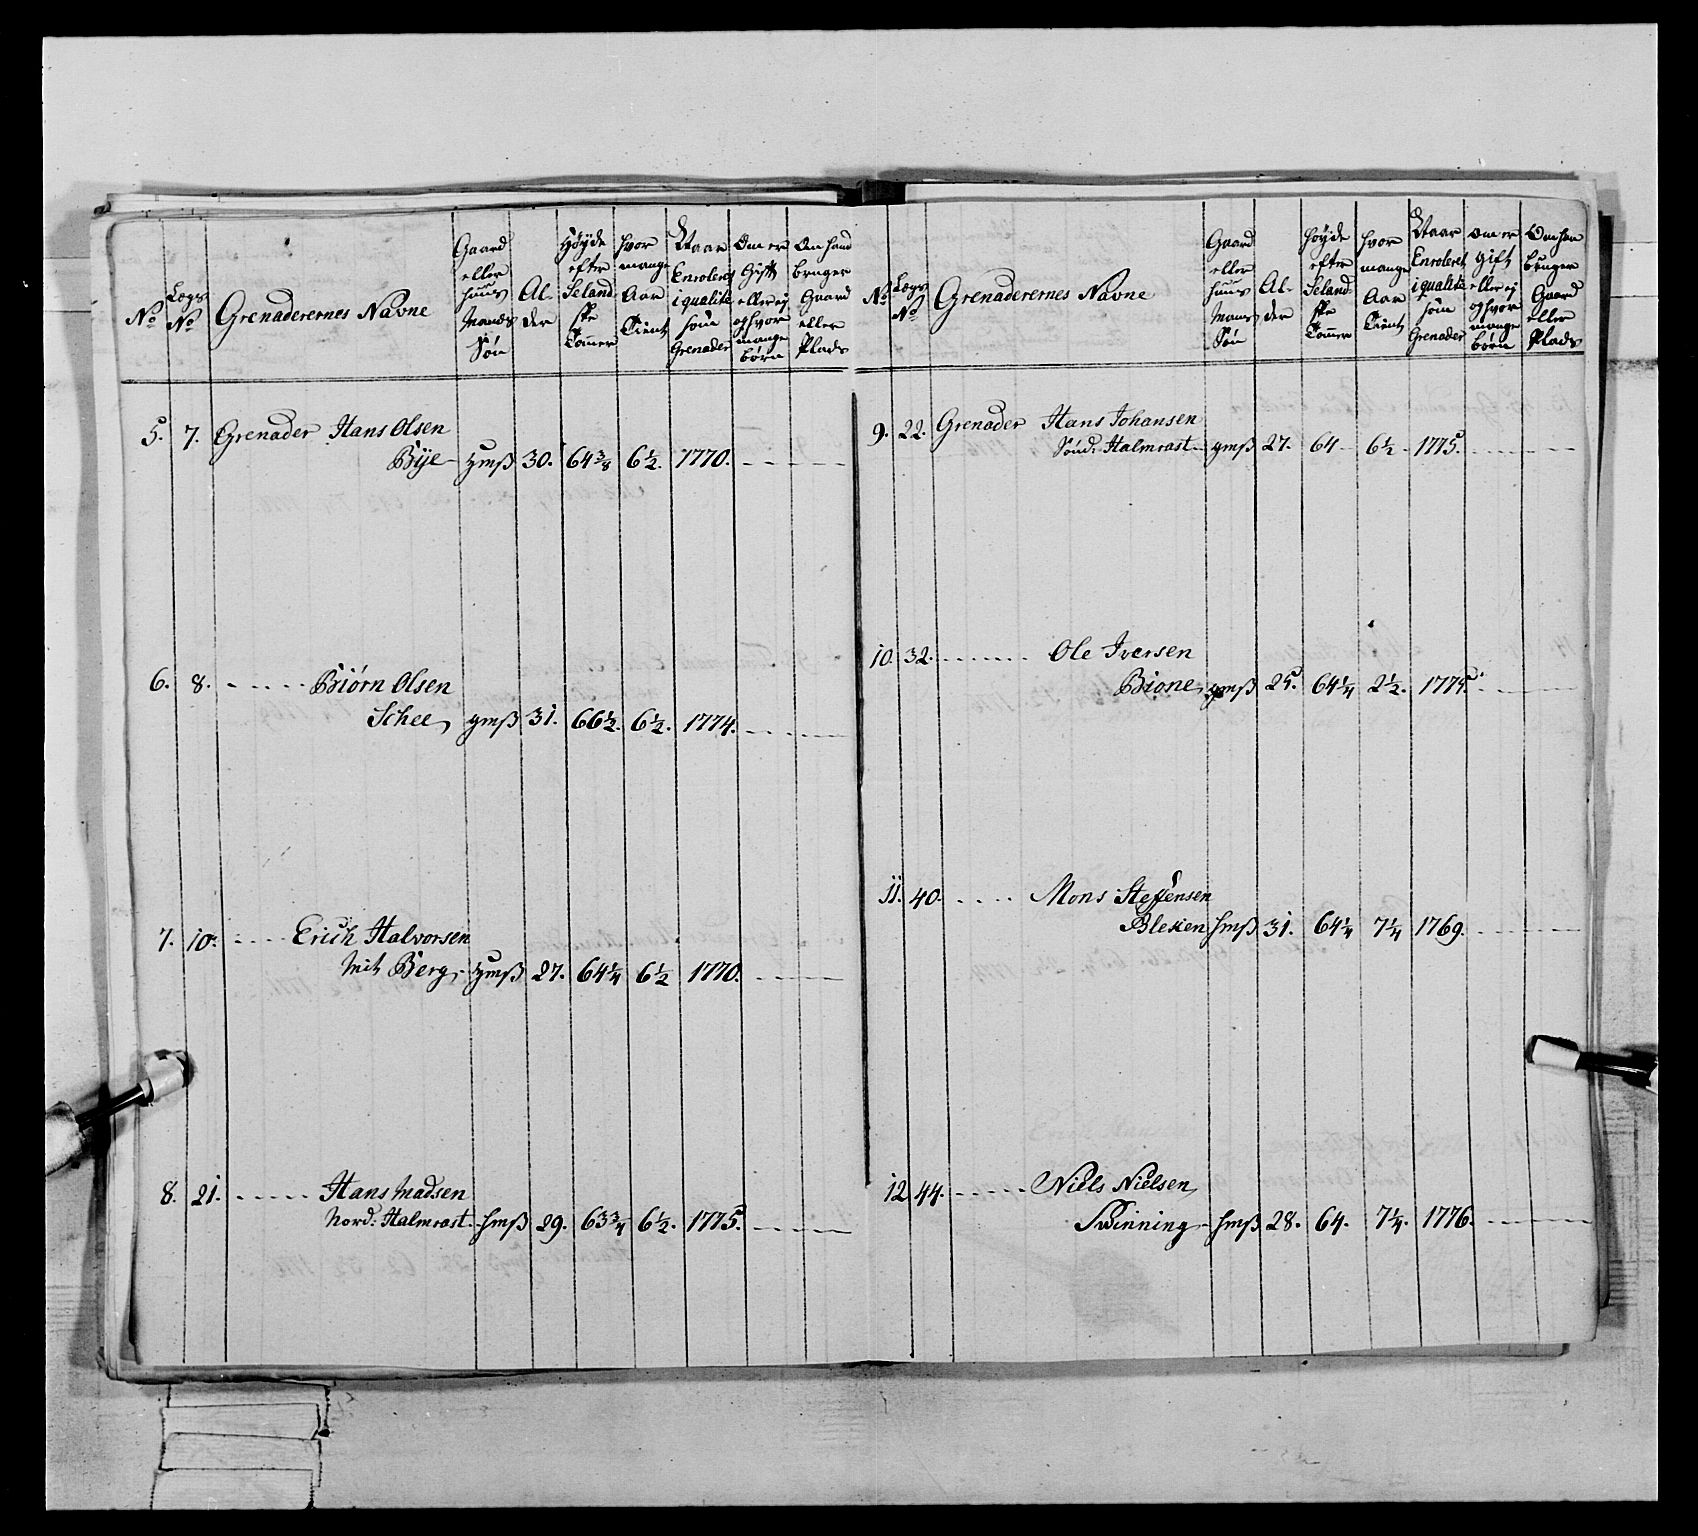 No
Lægs No
Grenaderernes Navne
Gaard eller Huus Mands Søn
Al- der
Høyde efter Seland- ske Tommer
Hvor mange Aar Tient
Hvaar Enroleret i qualite som Grenader
Om er Gift eller ej og hvor mange børn
Om hand bruger Gaard eller Plads
5. 7. Grenader Hans Olsen
Bye gmß 30. 64 3/8 6 1/2. 1770.
6. 8. Biørn Olsen
Schee, gmß 31. 66 1/2. 6 1/2. 1774.
7. 10. Erich Halvorsen
Mit Berg gmß 27. 64 1/4 6 1/2 1770.
8. 21. Hans Madsen
Nord: Halmrast hmß 29. 63 3/4 6 1/2. 1775.
No
Lægs No
Grenaderernes Navne
Gaard eller Huus Mans Søn
Al- der
Høyde efter Seland- ske Tommer
Hvor mange Aar Tient
Hvaar Enroleret i qualite som Grenader
Om er Gift eller ej og hvor mange børn
Om han bruger Gaard eller Plads
9. 22. Grenader Hans Johansen
Sönd: Halmrast gmß 27. 64 6 1/2 1775.
10. 32. Ole Iversen
Bione, gmß 25. 64 1/4 2 1/2. 1775.
11. 40. Mons Steffensen
Bleken hmß 31. 64 1/4 7 1/4 1769.
12 44. Niels Nielsen
Svinning hmß 28. 64. 7 1/4. 1776.